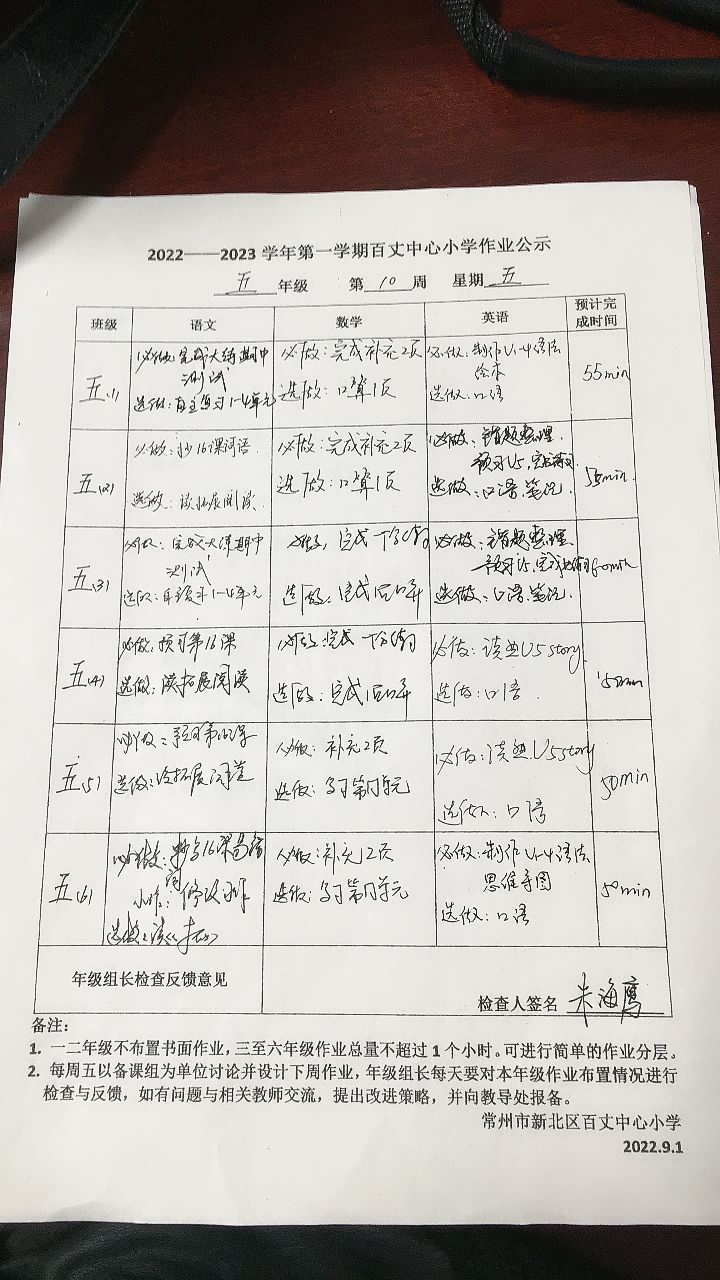 2022——2023 学年第一学期百丈中心小学作业公示
五 年级 第 10 周 星期 五
班级 语文 数学 英语 预计完成时间
五(1)
必做:完成大练期中
测试
选做:自主复习1-4单元
必做:完成补充2页
选做:口算1页
必做:制作U1-4语法
绘本
选做:口语
55min
五(2)
必做:抄16课词语
选做:读拓展阅读
必做:完成补充2页
选做:口算1页
必做:错题整理
预习U5,
选做:口语.笔记.
55min
五(3)
必做:完成大练期中
测试
选做:自复习1-4单元
必做:完成
选做:完成
必做:错题整理
预习U5,
选做:口语.笔记.
五(4)
必做:预习第16课
选做:读拓展阅读
必做:完成
选做:完成
必做:读熟U5 story
选做:口语
五(5)
必做:预习第16课
选做:
必做:补充2页
选做:
必做:读熟U5 story
选做:口语
50min
五(6)
必做:
选做:
必做:补充2页
选做:
必做:制作U1-4语法
思维导图
选做:口语
50min
年级组长检查反馈意见
检查人签名 朱海鹰
备注:
1. 一二年级不布置书面作业,三至六年级作业总量不超过 1 个小时。可进行简单的作业分层。
2. 每周五以备课组为单位讨论并设计下周作业,年级组长每天要对本年级作业布置情况进行
检查与反馈,如有问题与相关教师交流,提出改进策略,并向教导处报备。
常州市新北区百丈中心小学
2022.9.1